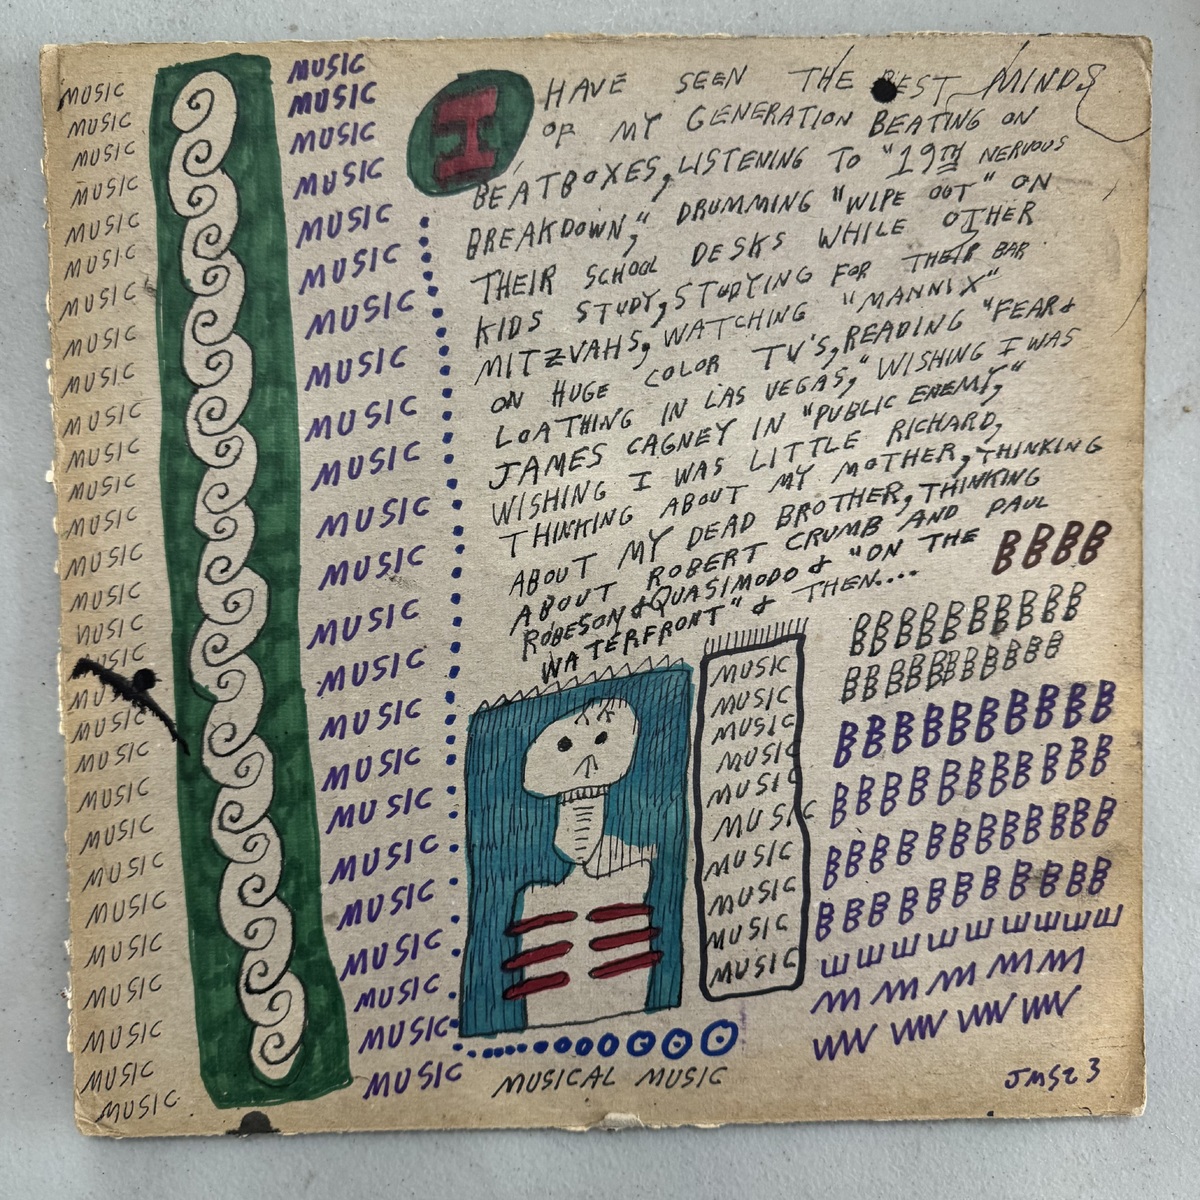 MUSIC
MUSIC
MUSIC
MUSIC
MUSIC
MUSIC
MUSIC
MUSIC
MUSIC
MUSIC
MUSIC
MUSIC
MUSIC
MUSIC
MUSIC
MUSIC
MUSIC
MUSIC
MUSIC
MUSIC
MUSIC
MUSIC
MUSIC
MUSIC
MUSIC
MUSIC
MUSIC
MUSIC
MUSIC
MUSIC
MUSIC
MUSIC
MUSIC
MUSIC
MUSIC
MUSIC
MUSIC
MUSIC
MUSIC
MUSIC
MUSIC
MUSIC
MUSIC
MUSIC
MUSIC
MUSIC
MUSIC
MUSIC
MUSIC
MUSIC
MUSIC
MUSIC
I HAVE SEEN THE BEST MINDS
OF MY GENERATION BEATING ON
BEATBOXES, LISTENING TO "19TH NERVOUS
BREAKDOWN," DRUMMING "WIPE OUT" ON
THEIR SCHOOL DESKS WHILE OTHER
KIDS STUDY, STUDYING FOR THEIR BAR
MITZVAHS, WATCHING "MANNIX"
ON HUGE COLOR TV'S, READING "FEAR &
LOATHING IN LAS VEGAS," WISHING I WAS
JAMES CAGNEY IN "PUBLIC ENEMY,"
WISHING I WAS LITTLE RICHARD,
THINKING ABOUT MY MOTHER, THINKING
ABOUT MY DEAD BROTHER, THINKING
ABOUT ROBERT CRUMB AND PAUL
ROBESON & QUASIMODO & "ON THE
WATERFRONT" & THEN....
MUSIC
MUSIC
MUSIC
MUSIC
MUSIC
MUSIC
MUSIC
MUSIC
MUSIC
MUSIC
BBBB
BBBBBBBBBB
BBBBBBBBBB
BBBBBBBBBB
BBBBBBBBBB
BBBBBBBBBBB
BBBBBBBBBB
MUSICAL MUSIC
JMS23